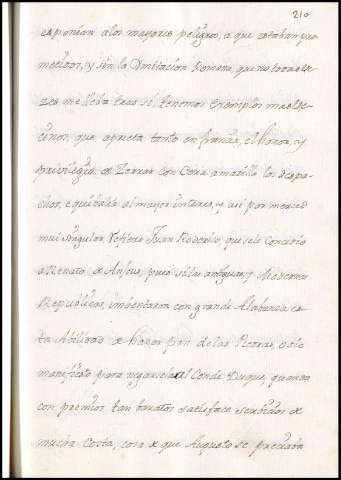 210
exponian alos mayores peligros, a que estaban pro
metidos, y sin la Imitacion Romana, que no
lleba tras si, tenemos exemplos mas Ve
cinos, que aprecia tanto en francia, el honor, y
privilegio de Zerrar con Cera amarilla los despa
chos, equibale al mayor interes, y asi por merced
mui singular, Refiere Juan Roderico, que se le Concedio
a Renato, de Anjou, pues si las antiguas, y Modernas
Republicas, imbentaron con grande Alabanza es
ta Abilidad de hazer pan de las Piedras, o sio
manifiesto para negarsela al Conde Duque, quando
con premios tan baratos satisface serbicios de
mucha Costa, cosa de que Augusto se preciaba